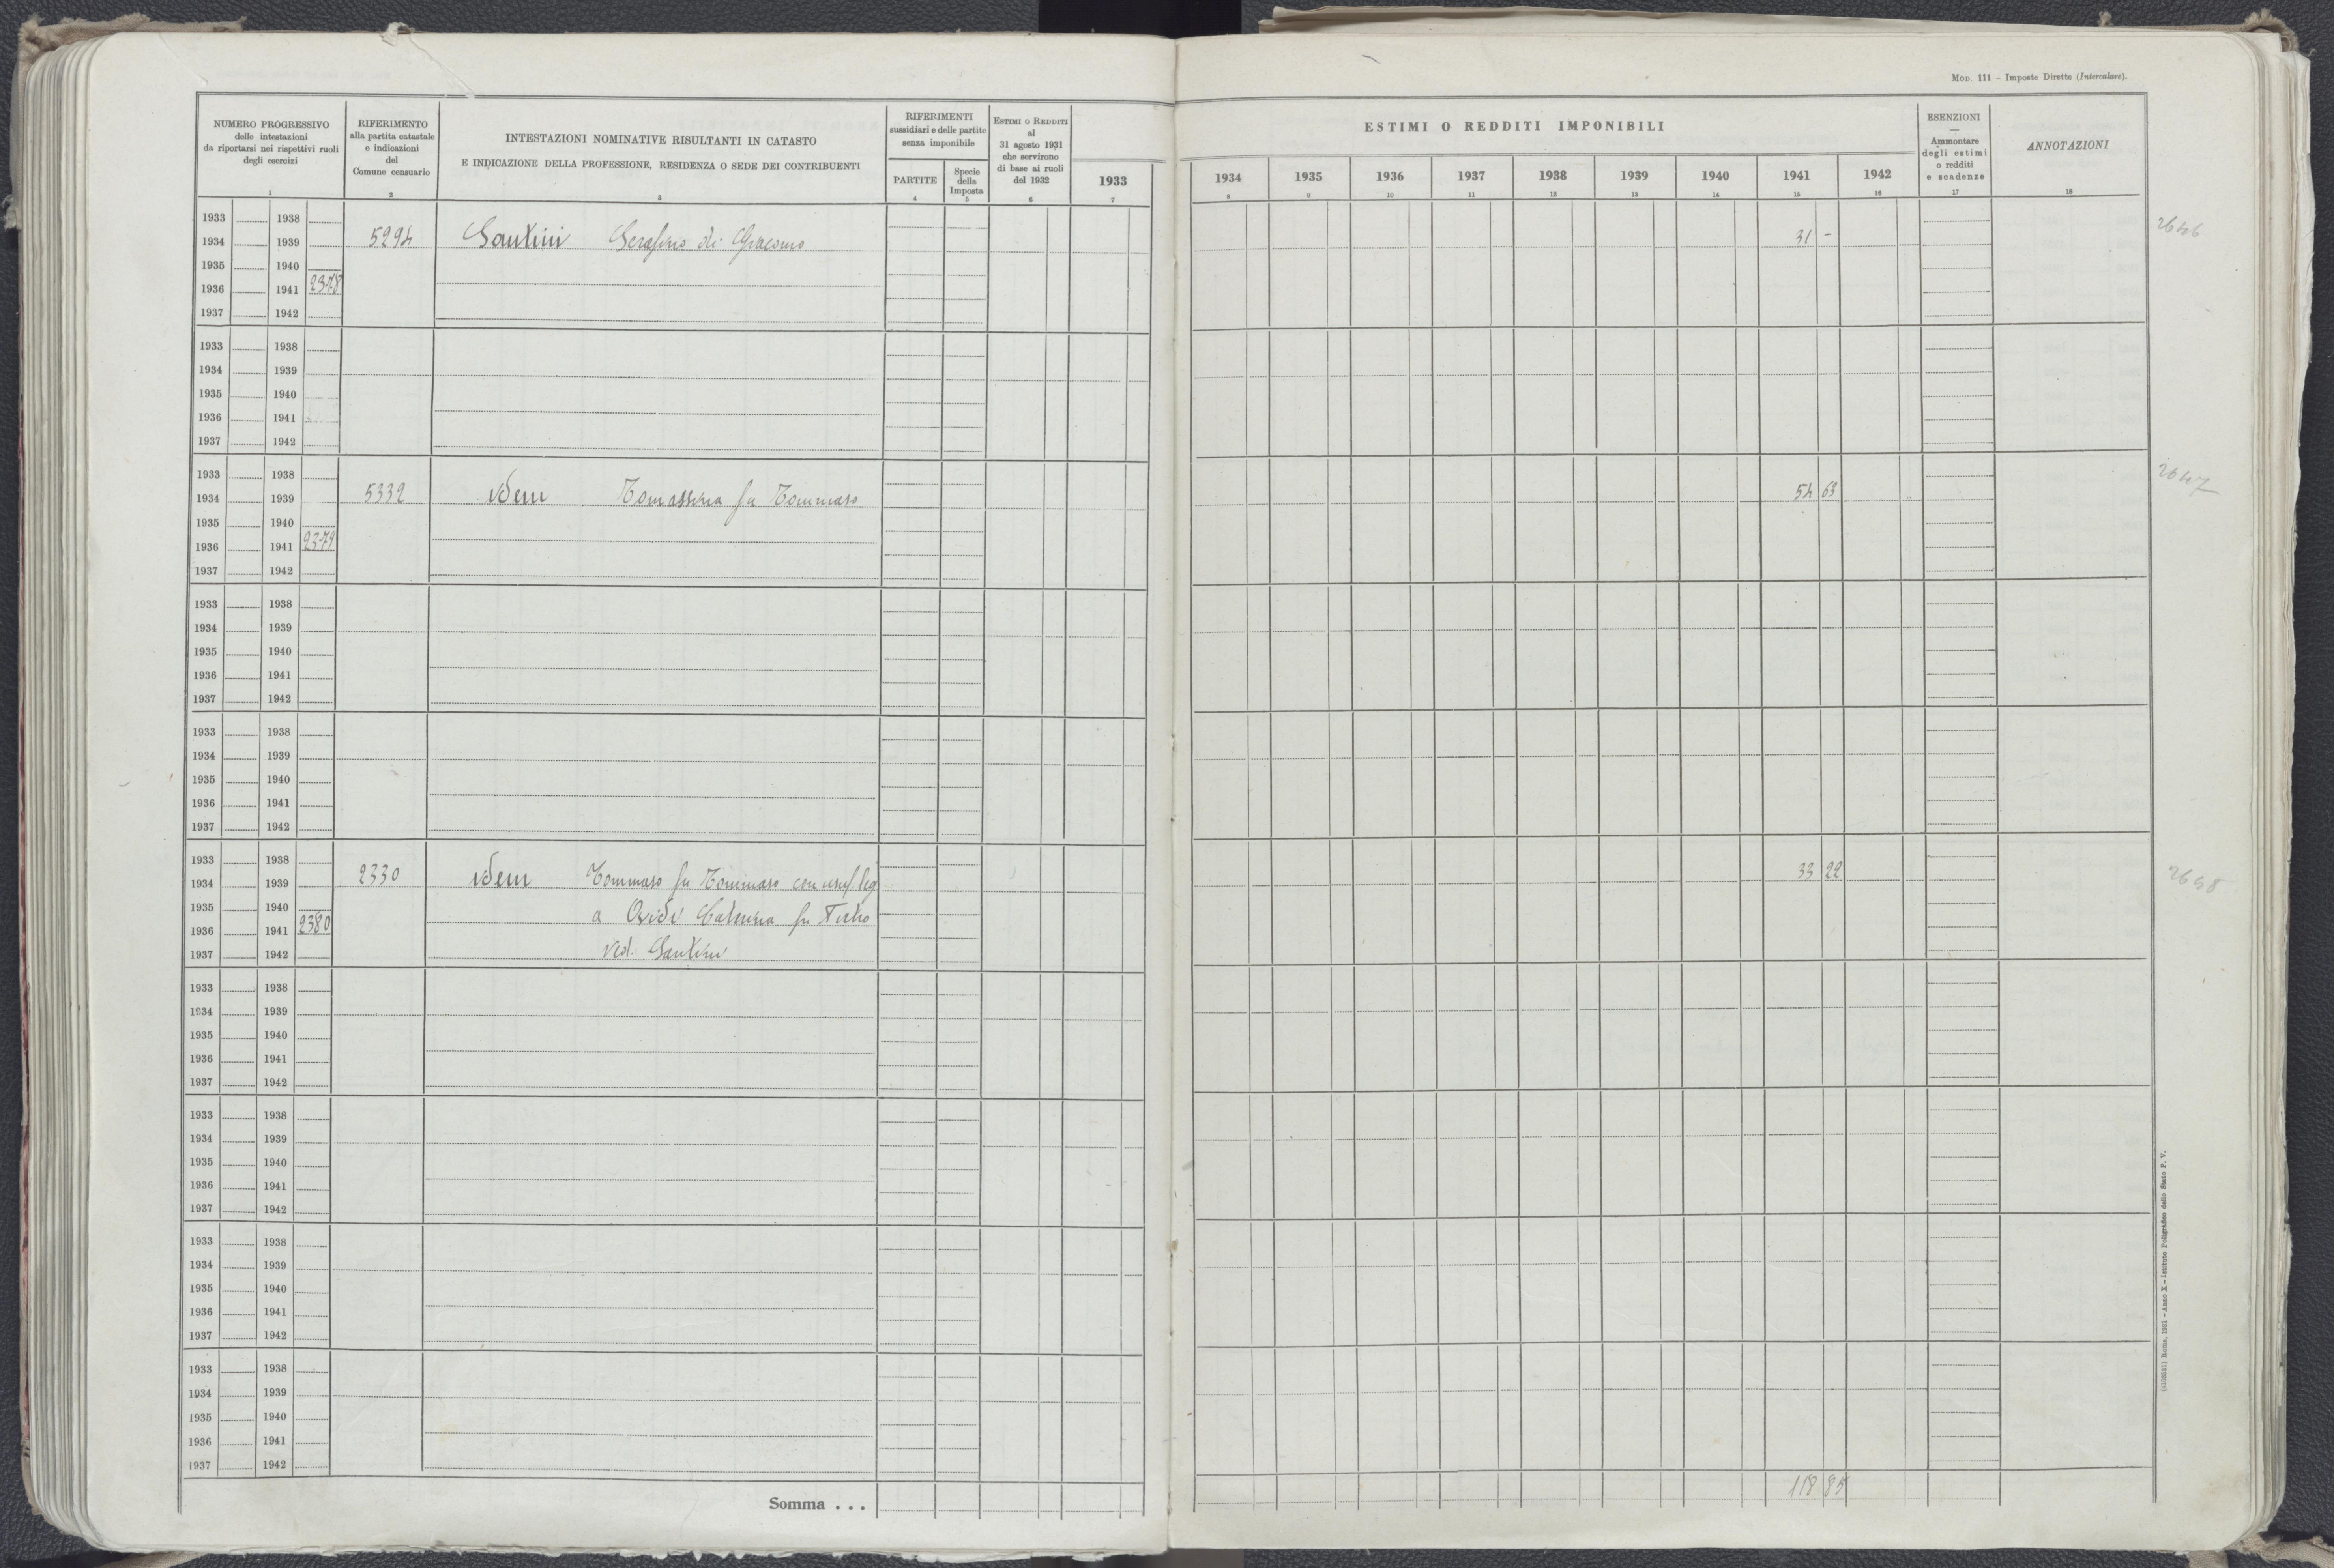 MOD. 111 – Imposte Dirette (Intercalare).
NUMERO PROGRESSIVO
delle intestazioni
da riportarsi nei rispettivi ruoli
degli esercizi
1
RIFERIMENTO
alla partita catastale
e indicazioni
del
Comune censuario
2
INTESTAZIONI NOMINATIVE RISULTANTI IN CATASTO
E INDICAZIONE DELLA PROFESSIONE, RESIDENZA O SEDE DEI CONTRIBUENTI
3
RIFERIMENTI
sussidiari e delle partite
senza imponibile
PARTITE
4
Specie
della
Imposta
5
ESTIMI O REDDITI
al
31 agosto 1931
che servirono
di base ai ruoli
del 1932
6
1933
7
ESTIMI O REDDITI IMPONIBILI
1934 1935 1936 1937 1938 1939 1940 1941 1942
8 9 10 11 12 13 14 15 16
ESENZIONI
—
Ammontare
degli estimi
o redditi
e scadenze
17
ANNOTAZIONI
18
1933 1938
1934 1939 5294 Santini Serafino di Giacomo 31 – 2646
1935 1940
1936 1941 2378
1937 1942
1933 1938
1934 1939
1935 1940
1936 1941
1937 1942
1933 1938
1934 1939 5332 Idem Tomassina fu Tommaso 54 63 2647
1935 1940
1936 1941 2379
1937 1942
1933 1938
1934 1939
1935 1940
1936 1941
1937 1942
1933 1938
1934 1939
1935 1940
1936 1941
1937 1942
1933 1938
1934 1939 2330 Idem Tommaso fu Tommaso con usuf leg 33 22 2648
1935 1940 a Ovidi Caterina fu
1936 1941 2380
1937 1942 ved. Santini
1933 1938
1934 1939
1935 1940
1936 1941
1937 1942
1933 1938
1934 1939
1935 1940
1936 1941
1937 1942
1933 1938
1934 1939
1935 1940
1936 1941
1937 1942
1933 1938
1934 1939
1935 1940
1936 1941
1937 1942
Somma . . . 118 85
Roma, 1931 – Anno X – Istituto Poligrafico dello Stato P. V.